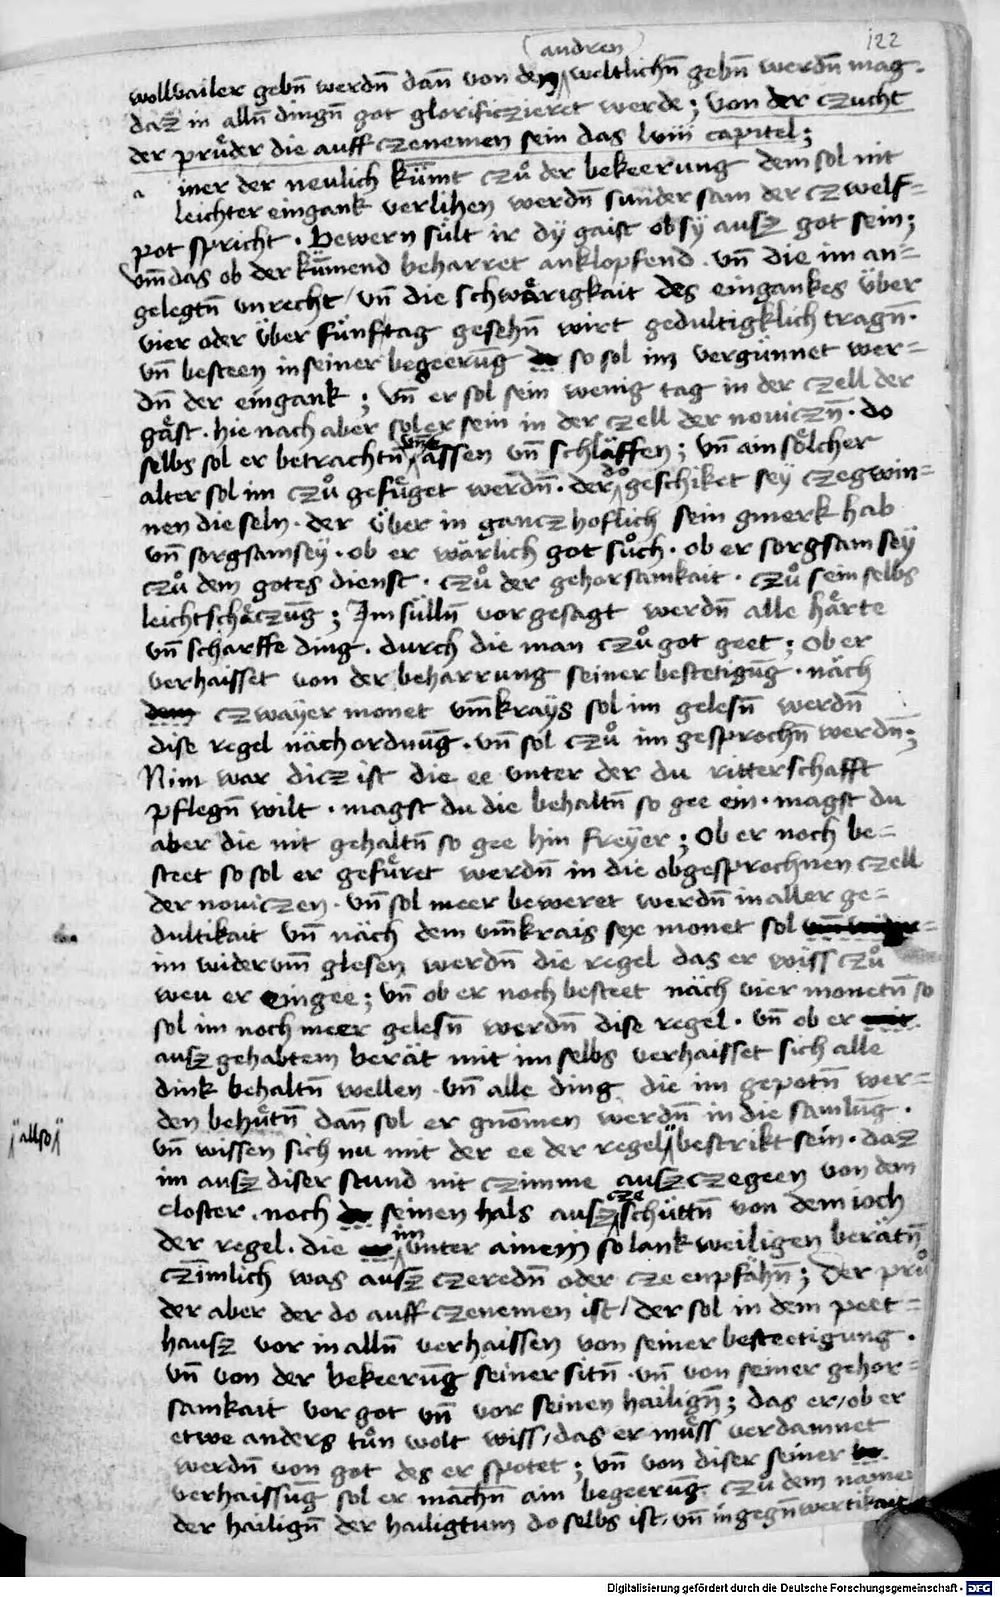 122
(andren)
wollvailer gebn̄ werdn̄ dañ von den weltlichn̄ gebn̄ werdn̄ mag.
daz in alln̄ dingn̄ got glorificzieret werde; von der czucht
der prüder die auff czenemen sein das lviii capitel;
a iner der neulich kümt czů der bekeerung dem sol nit
leichter eingank verlihen werdn̄ sunder sam der czwelf=
pot spricht. Bewern sült ir dy gaist ob sy ausz got sein;
vm̄ das ob der kümend beharret anklopfend. vn̄ die im an=
gelegtn̄ vnrecht / vn̄ die schwärigkait des eingankes über
vier oder über fünf tag gesehn̄ wirt gedultigklich tragn̄.
vn̄ besteen in seiner begeerūg so sol im vergünnet wer=
dn̄ der eingank; vn̄ er sol sein wenig tag in der czell der
gäst. hie nach aber sol er sein in der czell der noviczn̄. do
selbs sol er betrachtn̄ vnd ässen vn̄ schläffen; vn̄ ain sölcher
alter sol im czů gefüget werdn̄. der do geschiket sey czegwin=
nen die seln. der über in gancz hoflich sein gmerk hab
vn̄ sorgsam sey. ob er wärlich got sůch. ob er sorgsam sey
czů dem gotes dienst. czů der gehorsamkait. czů sein selbs
leichtschäczūg; Im sülln̄ vorgesagt werdn̄ alle härte
vn̄ scharffe ding. durch die man czů got geet; Ob er
verhaisset von der beharrung seiner bestetigūg. näch
dem czwayer monet vm̄krays sol im gelesn̄ werdn̄
dise regel näch ordnūg. vn̄ sol czů im gesprochn̄ werdn̄;
Nim war dicz ist die ee vnter der du ritterschafft
pflegn̄ wilt. magst du die behaltn̄ so gee ein. magst du
aber die nit gehaltn̄ so gee hin freyer; Ob er noch be=
steet so sol er gefüret werdn̄ in die obgesprochnen czell
der noviczen. vn̄ sol meer beweret werdn̄ in aller ge=
dultikait vn̄ näch dem vm̄krais sex monet sol
im widervm̄ glesen werdn̄ die regel das er wiss czů
weu er eingee; vn̄ ob er noch besteet näch vier monetn̄ so
sol im noch meer gelesn̄ werdn̄ dise regel. vn̄ ob er mit
ausz gehabtem berät mit im selbs verhaisset sich alle
dink behaltn̄ wellen. vn̄ alle ding die im gepotn̄ wer=
den behütn̄ dañ sol er gnom̄en werdn̄ in die samlūg.
"also"
vn̄ wissen sich nu mit der ee der regel " bestrikt sein. daz
im ausz diser stund nit czimme ausz czegeen von dem
closter. noch seinen hals ausz cze schüttn̄ von dem ioch
der regel. die im vnter ainem so lankweiligen berätn̄
czimlich was ausz czeredn̄ oder cze enpfähn̄; Der prů
der aber der do auff czenemen ist / der sol in dem peet=
hausz vor in alln̄ verhaissen von seiner besteetigung.
vn̄ von der bekeerūg seiner sitn̄. vn̄ von seiner gehor=
samkait vor got vn̄ vor seinen hailign̄; das er / ob er
etwe anders tůn wolt wiss / das er müss verdamnet
werdn̄ von got des er spotet; vn̄ von diser seiner
verhaissūg sol er machn̄ ain begeerūg. czů dem name
der hailign̄ der hailigtum do selbs ist. vn̄ in gegn̄wertikait
Digitalisierung gefördert durch die Deutsche Forschungsgemeinschaft - DFG